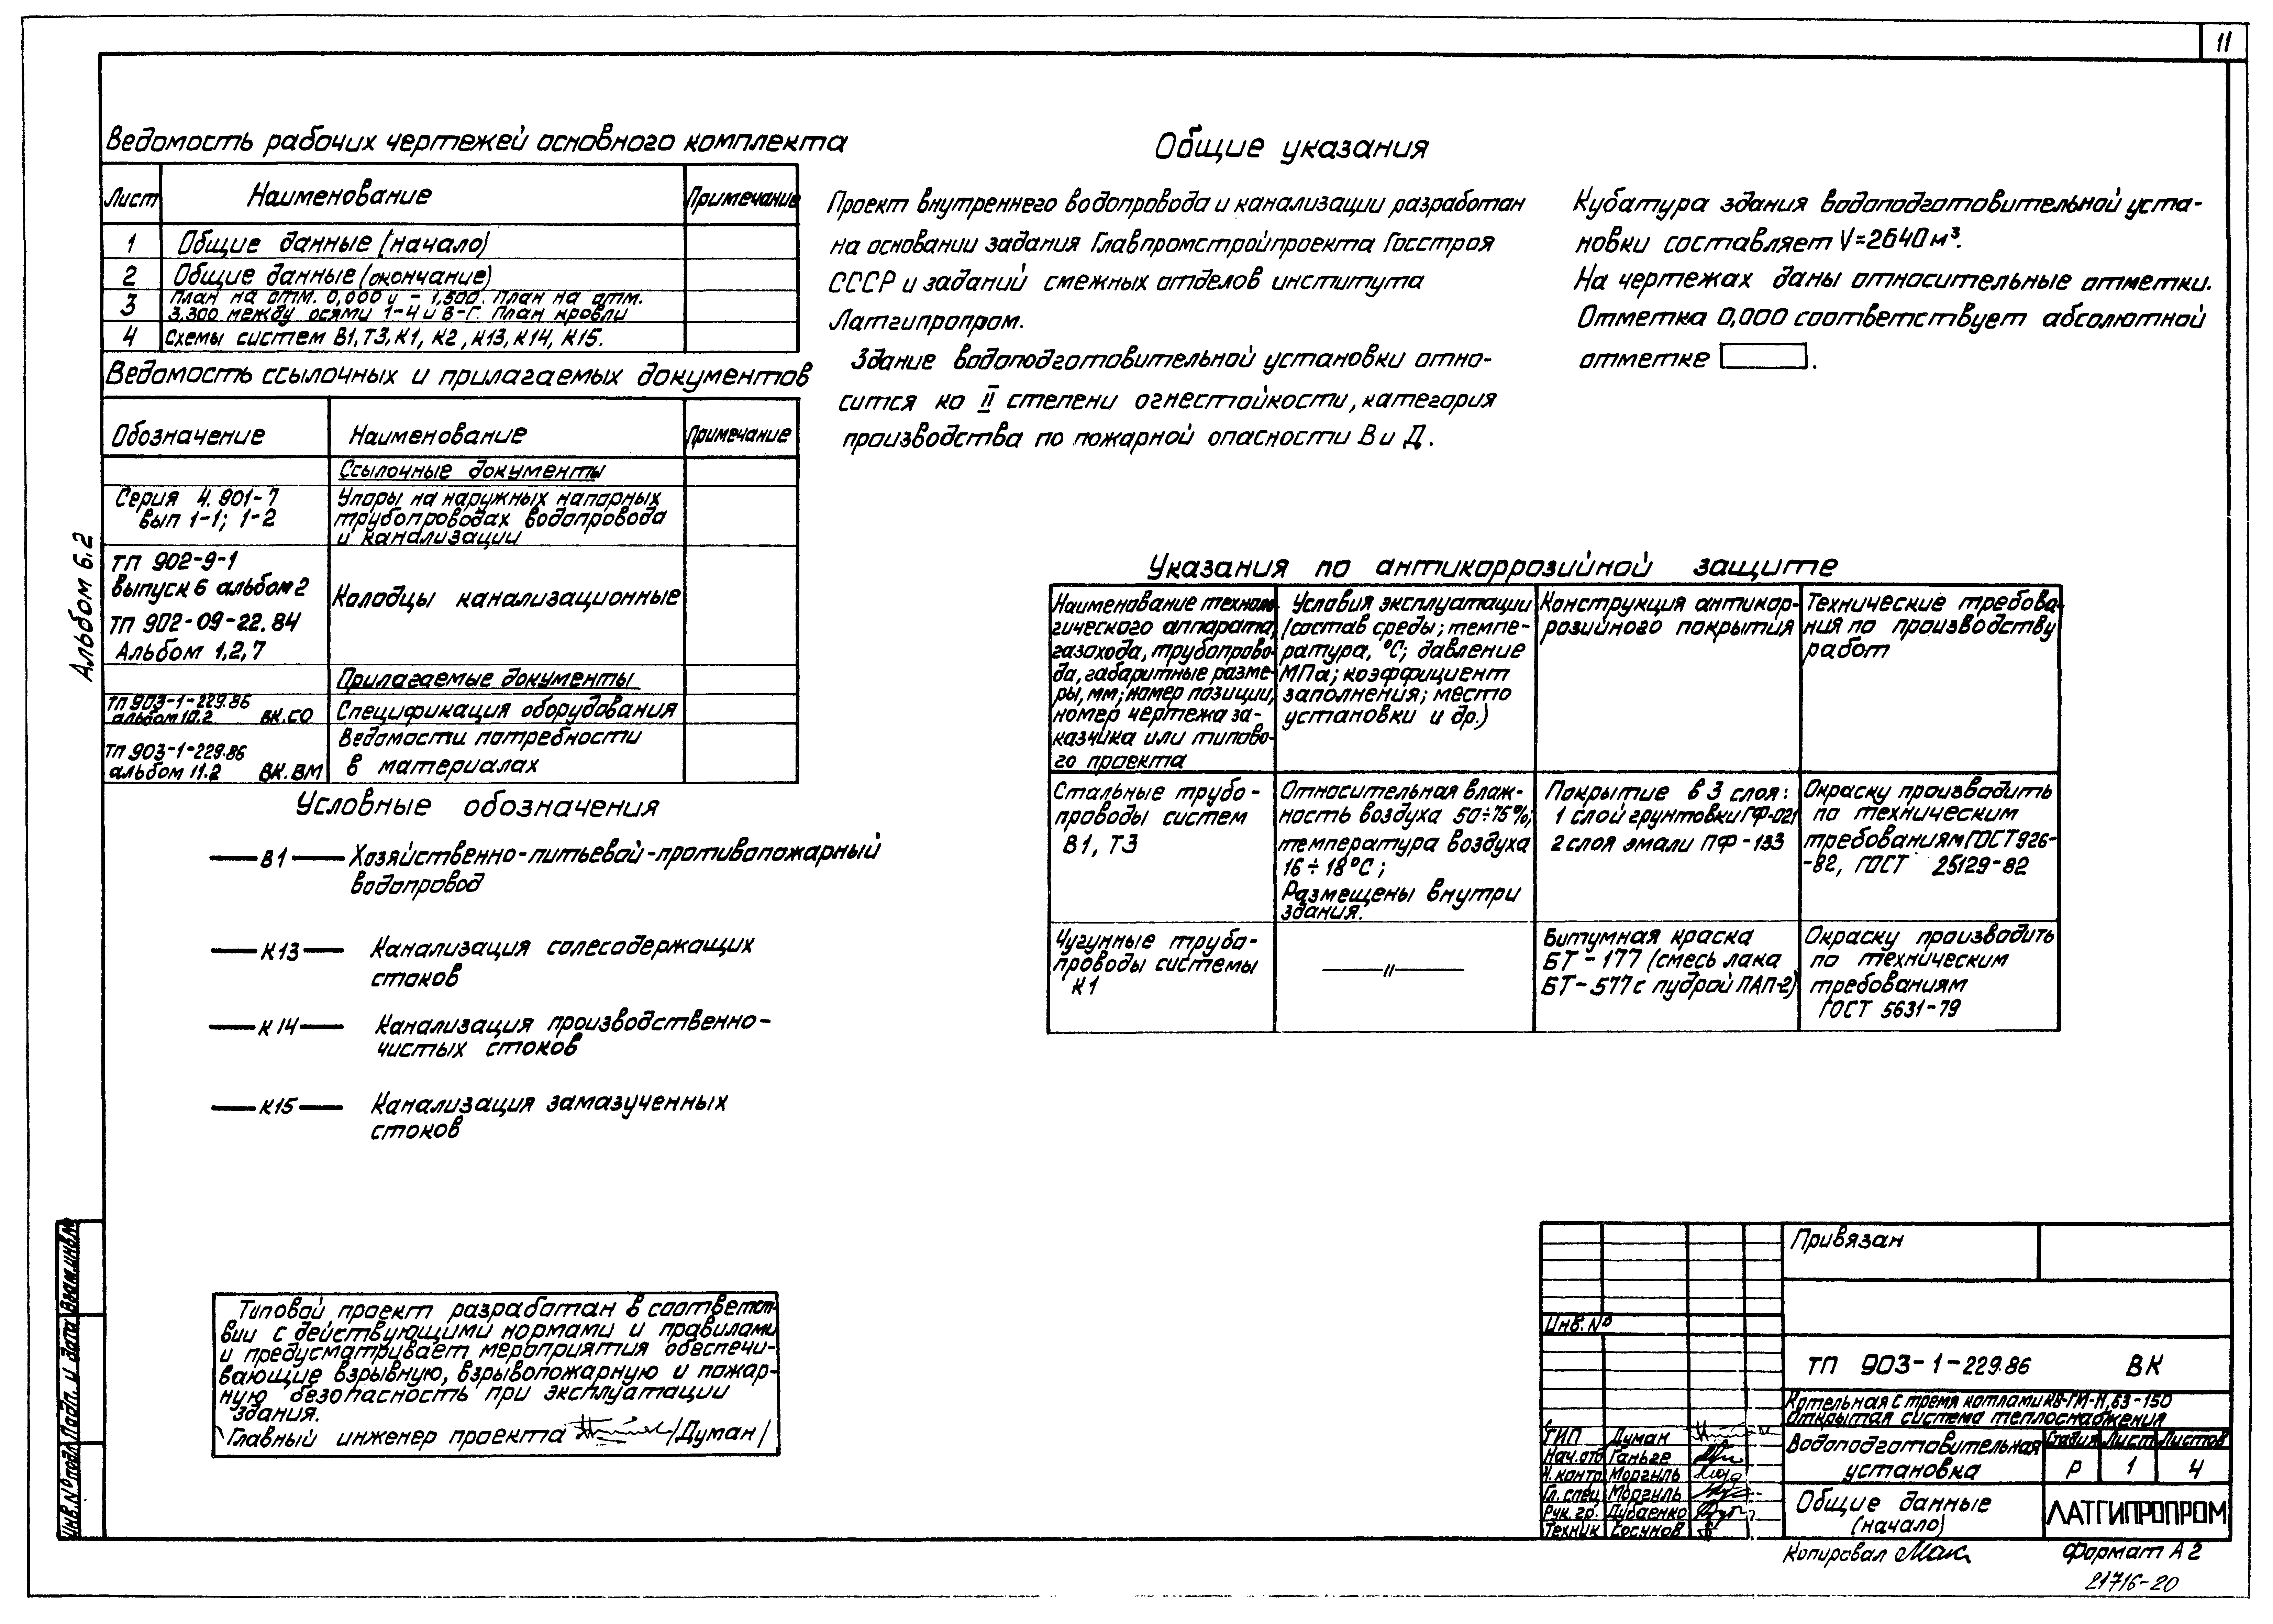 11
Ведомость рабочих чертежей основного комплекта
Лист Наименование Примечание
1 Общие данные (начало)
2 Общие данные (окончание)
3 План на отм. 0,000 и -1,500. План на отм.
3,300 между осями 1-4 и В-Г. План кровли
4 Схемы систем В1, Т3, К1, К2, К13, К14, К15.
Ведомость ссылочных и прилагаемых документов
Обозначение Наименование Примечание
Ссылочные документы
Серия 4.901-7 Упоры на наружных напорных
вып 1-1; 1-2 трубопроводах водопровода
и канализации
ТП 902-9-1
выпуск 6 альбом 2
Колодцы канализационные
ТП 902-09-22.84
Альбом 1,2,7
Прилагаемые документы
ТП 903-1-229.86
альбом 10.2 ВК.СО Спецификация оборудования
ТП 903-1-229.86 Ведомости потребности
альбом 11.2 ВК.ВМ в материалах
Условные обозначения
В1 Хозяйственно-питьевой-противопожарный
водопровод
К13 Канализация солесодержащих
стоков
К14 Канализация производственно-
чистых стоков
К15 Канализация замазученных
стоков
Типовой проект разработан в соответст-
вии с действующими нормами и правилами
и предусматривает мероприятия обеспечи-
вающие взрывную, взрывопожарную и пожар-
ную безопасность при эксплуатации
здания.
Главный инженер проекта /Думан/
Общие указания
Проект внутреннего водопровода и канализации разработан
на основании задания Главпромстройпроекта Госстроя
СССР и заданий смежных отделов института
Латгипропром.
Здание водоподготовительной установки отно-
сится ко II степени огнестойкости, категория
производства по пожарной опасности В и Д.
Кубатура здания водоподготовительной уста-
новки составляет V=2640 м³.
На чертежах даны относительные отметки.
Отметка 0,000 соответствует абсолютной
отметке .
Указания по антикоррозийной защите
Наименование техноло-
гического аппарата,
газохода, трубопрово-
да, габаритные разме-
ры, мм; номер позиции,
номер чертежа за-
казчика или типово-
го проекта
Условия эксплуатации
(состав среды; темпе-
ратура, °С; давление
МПа; коэффициент
заполнения; место
установки и др.)
Конструкция антикор-
розийного покрытия
Технические требова-
ния по производству
работ
Стальные трубо-
проводы систем
В1, Т3
Относительная влаж-
ность воздуха 50÷75%;
температура воздуха
16÷18°С;
Размещены внутри
здания.
Покрытие в 3 слоя:
1 слой грунтовки ГФ-021
2 слоя эмали ПФ-133
Окраску производить
по техническим
требованиям ГОСТ 926-
-82, ГОСТ 25129-82
Чугунные трубо-
проводы системы
К1
—"—
Битумная краска
БТ-177 (смесь лака
БТ-577 с пудрой ПАП-2)
Окраску производить
по техническим
требованиям
ГОСТ 5631-79
Альбом 6.2
Взам.инв.№
Подп. и дата
Инв.№подл.
Привязан
Инв.№
ТП 903-1-229.86 ВК
Котельная с тремя котлами КВ-ГМ-11,63-150
Открытая система теплоснабжения
ГИП Думан
Нач.отд Ганьге
Н.контр Моргыль
Гл.спец Моргыль
Рук.гр. Дубаенко
Техник Сосунов
Водоподготовительная
установка
Стадия Лист Листов
Р 1 4
Общие данные
(начало)
ЛАТГИПРОПРОМ
Копировал Мак Формат А2
21716-20